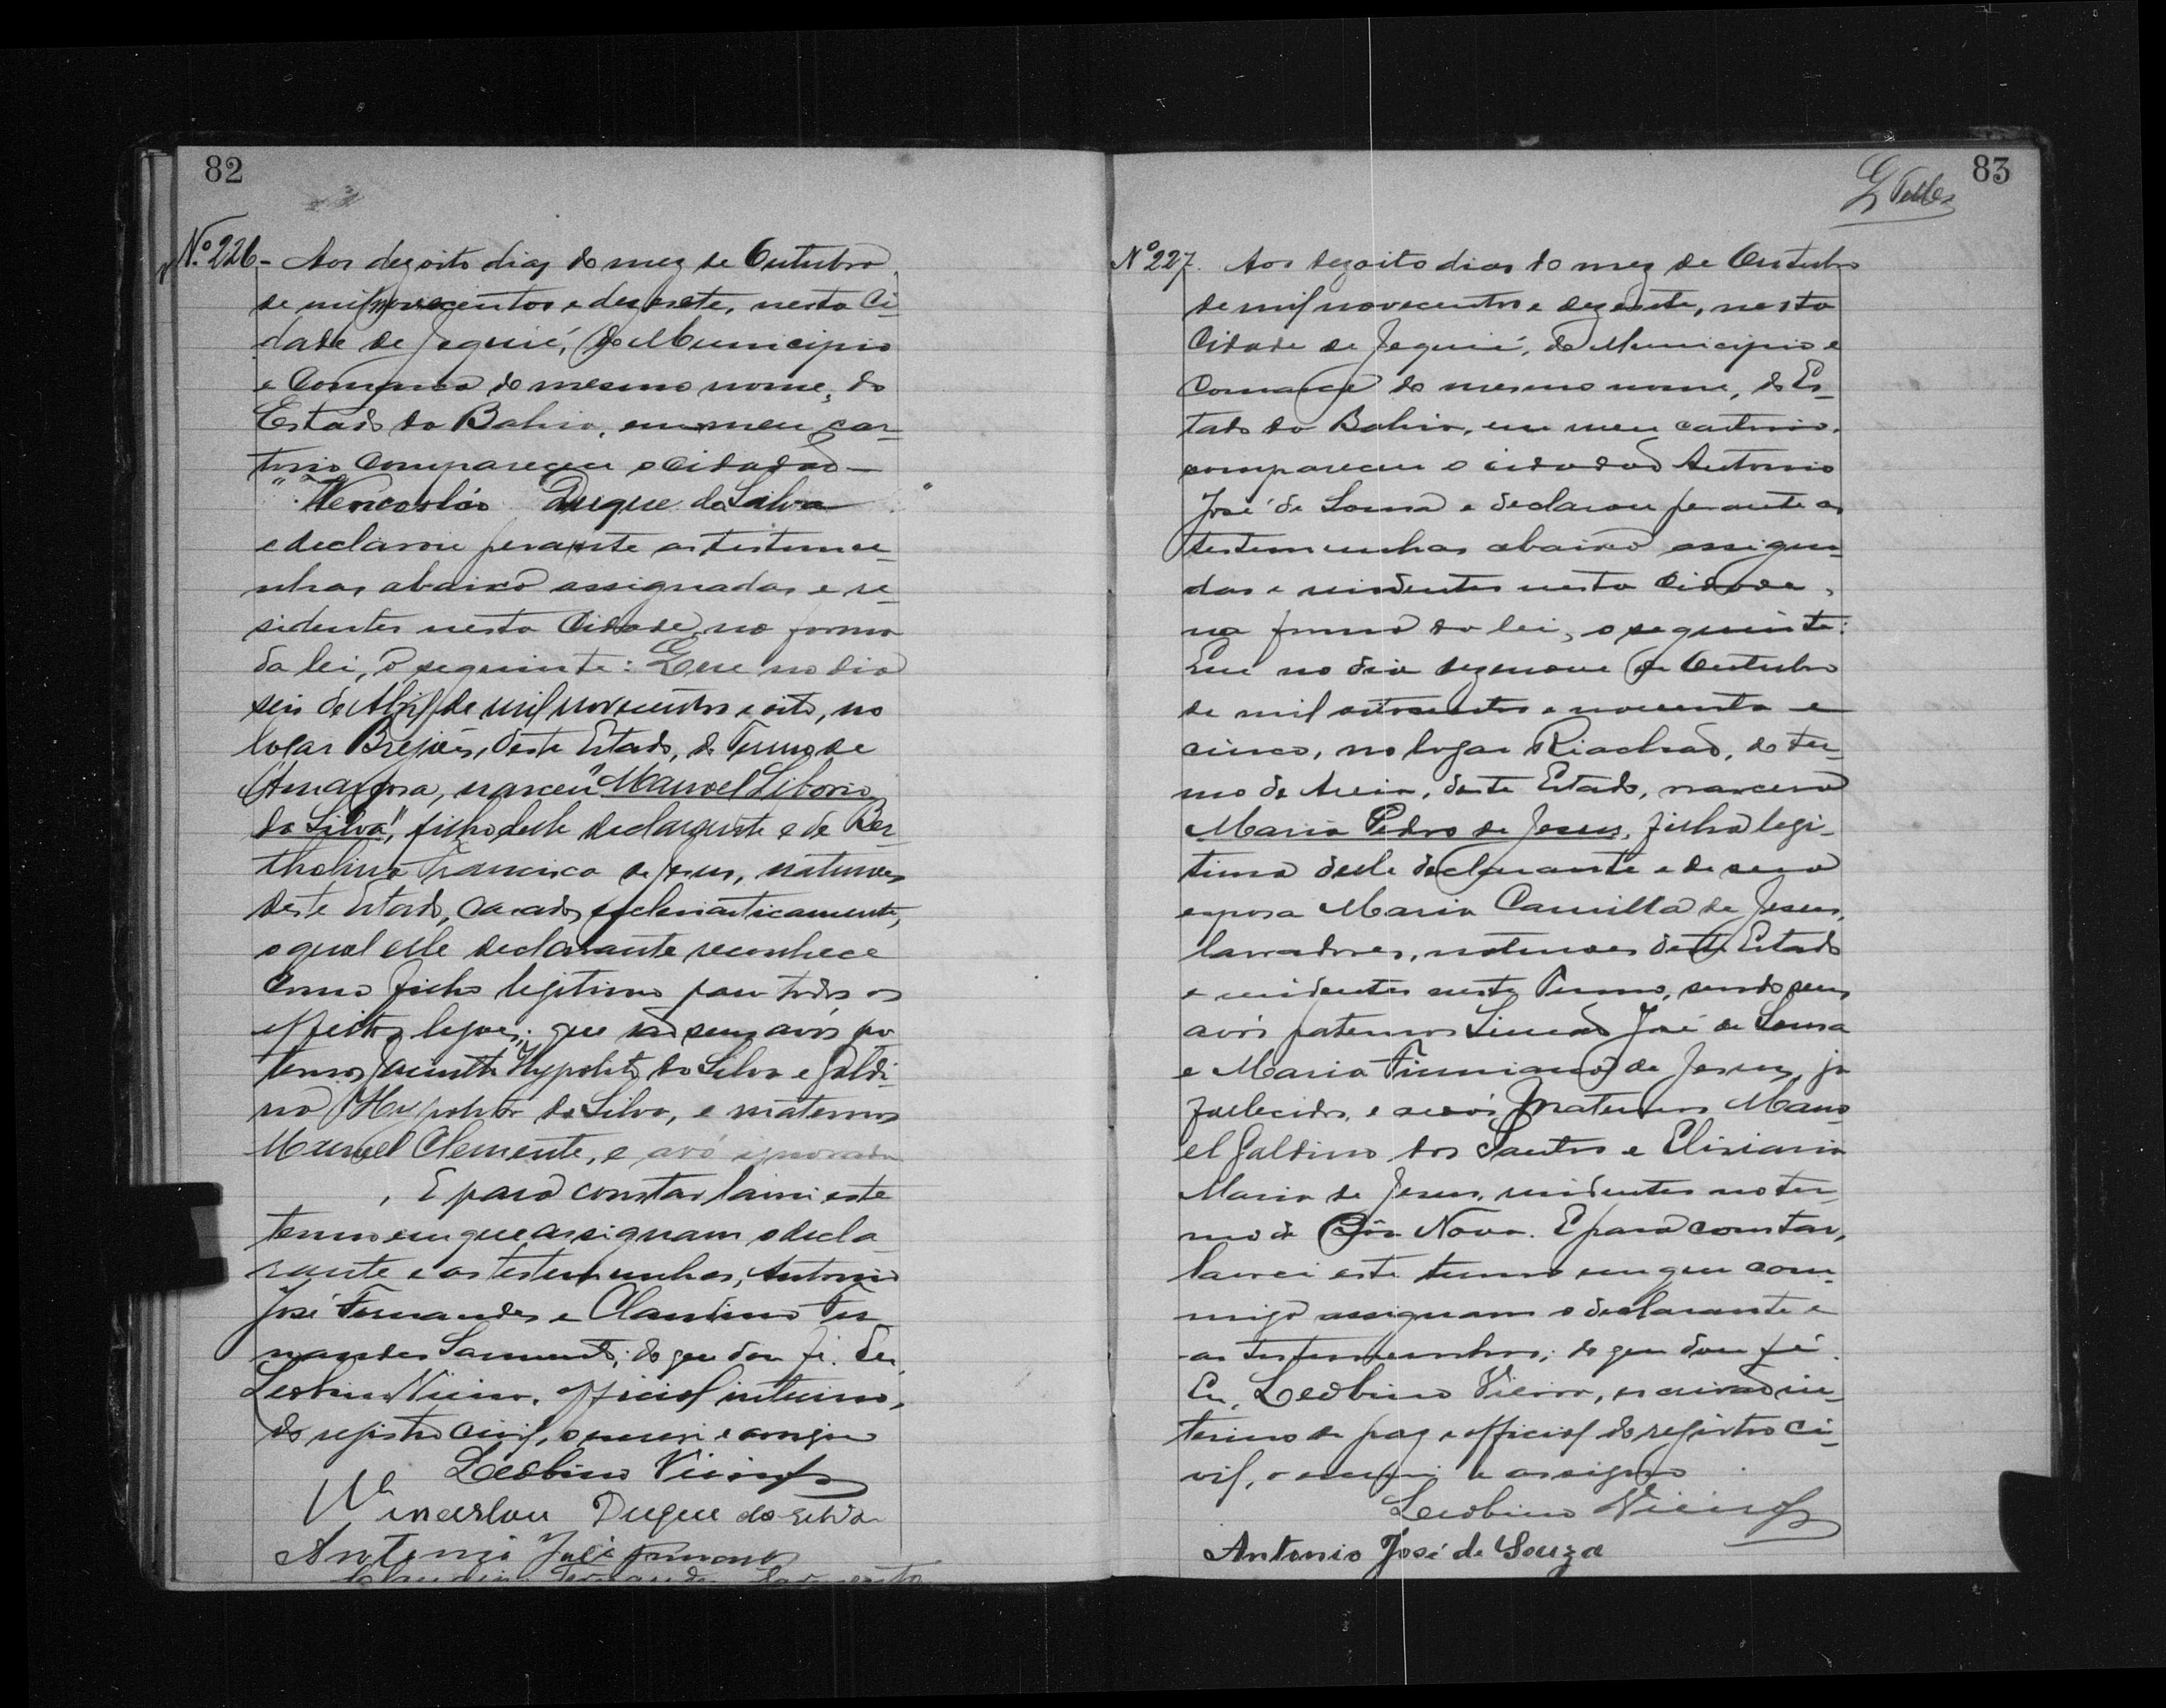 82
Nº 226 - Aos dezoito dias do mez de Outubro
de mil novecentos e dezesete, nesta Ci-
dade de Jequié, do Municipio
e Comarca do mesmo nome, do
Estado da Bahia, em meu car-
torio compareceu o cidadão
"Wencesláo Duque da Silva"
e declarou perante as testimu-
nhas abaixo assignadas e re-
sidentes nesta Cidade, na forma
da lei, o seguinte: Que no dia
seis de Abril de mil novecentos e oito, no
logar Brejões, deste Estado, do Termo de
Amargosa, nasceu "Manoel Liborio
da Silva", filho delle declarante e de Ber-
tholina Francisca de Jesus, naturaes
deste Estado, casados ecclesiasticamente,
o qual elle declarante reconhece
como filho legitimo para todos os
effeitos legaes; que são seus avós pa-
ternos Jacintho Hypolito da Silva e Galdi-
na Hypolita da Silva, e maternos
Manoel Clemente, e avó ignorada
. E para constar lavrei este
termo em que assignam o decla-
rante e as testemunhas, Antonio
José Fernandes e Claudino Fer-
nandes Sarmento; do que dou fé. Eu,
Leobino Vieira, official interino,
do registro civil, o escrevi e assigno
Leobino Vieira
Wencerlau Duque da Silva
Antonio José
Claudino Fernandes Sarmento
83
Nº 227. Aos dezoito dias do mez de Outubro
de mil novecentos e dezesete, nesta
Cidade de Jequié, do Municipio e
Comarca do mesmo nome, do Es-
tado da Bahia, em meu cartorio,
compareceu o cidadão Antonio
José de Sousa e declarou perante as
testemunhas abaixo assigna-
das e residentes nesta Cidade,
na forma da lei, o seguinte:
Que no dia dezenove de Outubro
de mil oitocentos e noventa e
cinco, no logar Riachão, do ter-
mo de Areia, deste Estado, nasceu
Maria Pedro de Jesus, filha legi-
tima delle declarante e de sua
esposa Maria Camilla de Jesus,
lavradores, naturaes deste Estado
e residentes neste Termo, sendo seus
avós paternos Simeão José de Sousa
e Maria Firmiana de Jesus, já
fallecidos, e avós maternos Mano-
el Galdino dos Santos e Elisiaria
Maria de Jesus, residentes no ter-
mo de Bôa Nova. E para constar,
lavrei este termo em que com-
migo assignam o declarante e
as testemunhas; do que dou fé.
Eu, Leobino Vieira, escrivão in-
terino de paz e official do registro ci-
vil, o escrevi e assigno
Leobino Vieira
Antonio José de Souza